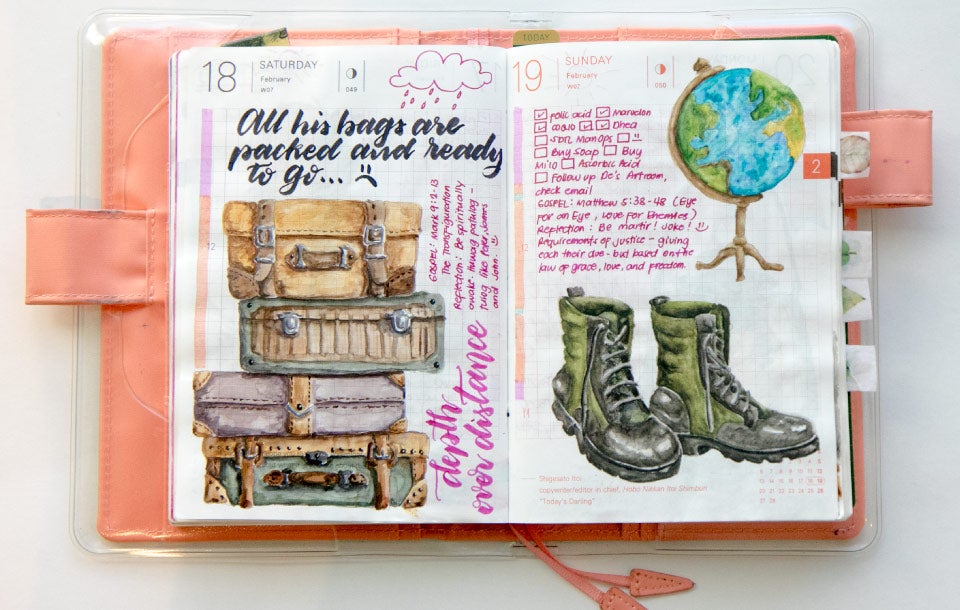 18
SATURDAY
February
W07
049
All his bags are
packed and ready
to go...
GOSPEL: Mark 9:2-13
The Transfiguration
Reflection: Be spiritually
awake. Huwag patulog-
tulog like Peter, James
and John.
depth
over distance
12
TODAY
19
SUNDAY
February
W07
050
Folic acid Marvelon
COQ10 Dhea
Buy Soap Buy
Milo Ascorbic Acid
Follow up Dc's Artroom,
check email
GOSPEL: Matthew 5:38-48 (Eye
For an Eye, Love For Enemies)
Reflection: Be martir! Joke!
Requirements of justice - giving
each their due - but based on the
law of grace, love, and freedom.
2
Shigesato Itoi
copywriter/editor in chief, Hobo Nikkan Itoi Shimbun
"Today's Darling"
6 7 8 9 10 11 12
13 14 15 16 17 18 19
20 21 22 23 24 25 26
27 28